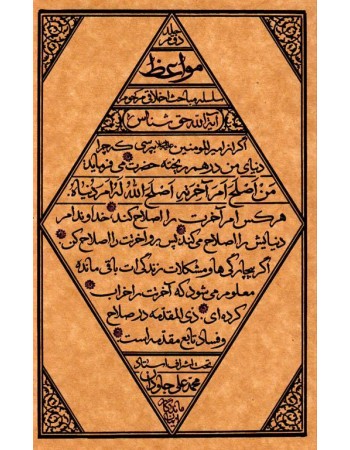 جلد دوم
مواعظ
سلسله مباحث اخلاقی مرحوم
آیة الله حق شناس
اگر از امیرالمومنین علیه السلام بپرسی که چرا
دنیای من در هم ریخته حضرت می فرماید:
مَن اَصلَحَ اَمرَ آخِرَتِهِ اَصلَحَ اللهُ لَهُ اَمرَ دُنیاهُ.
هر کس امر آخرت را اصلاح کند، خداوند امر
دنیایش را اصلاح می کند. پس رو آخرت را اصلاح کن.
اگر بیچارگی ها و مشکلات زندگی ات باقی مانده
معلوم می شود که آخرت را خراب
کرده ای. ذی المقدمه در صلاح
و فساد تابع مقدمه است.
تحت اشراف استاد
محمد علی جاودان